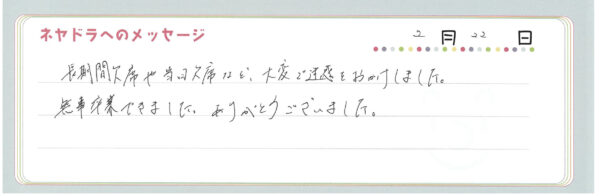 ネヤドラへのメッセージ
2月22日
長期間欠席や当日欠席など、大変ご迷惑をおかけしました。
無事卒業できました。ありがとうございました。